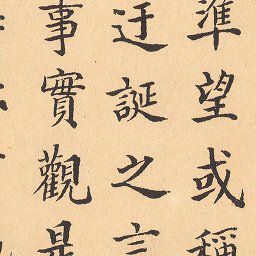 準望或稱
迂誕之言
事實觀是